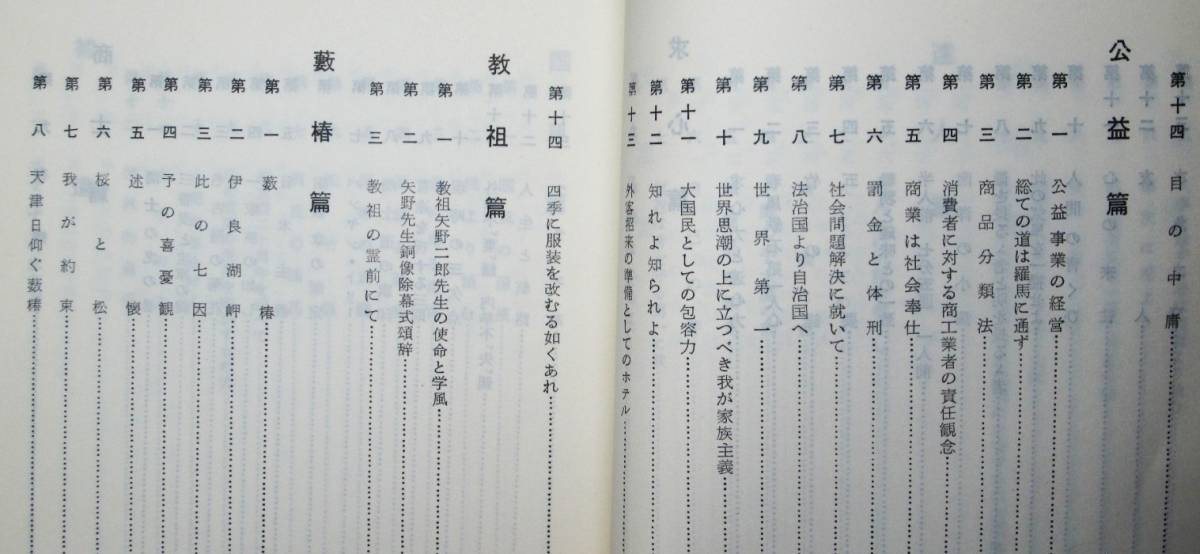 第十四 目の中庸
公益篇
第一 公益事業の経営
第二 総ての道は羅馬に通ず
第三 商品分類法
第四 消費者に対する商工業者の責任観念
第五 商業は社会奉仕
第六 罰金と体刑
第七 社会問題解決に就いて
第八 法治国より自治国へ
第九 世界第一
第十 世界思潮の上に立つべき我が家族主義
第十一 大国民としての包容力
第十二 知れよ知られよ
第十三 外客招来の準備としてのホテル
第十四 四季に服装を改むる如くあれ
教祖篇
第一 教祖矢野二郎先生の使命と学風
第二 矢野先生銅像除幕式頌辞
第三 教祖の霊前にて
藪椿篇
第一 藪椿
第二 伊良湖岬
第三 此の七因
第四 子の喜憂観
第五 述懐
第六 桜と松
第七 我が約束
第八 天津日仰ぐ薮椿